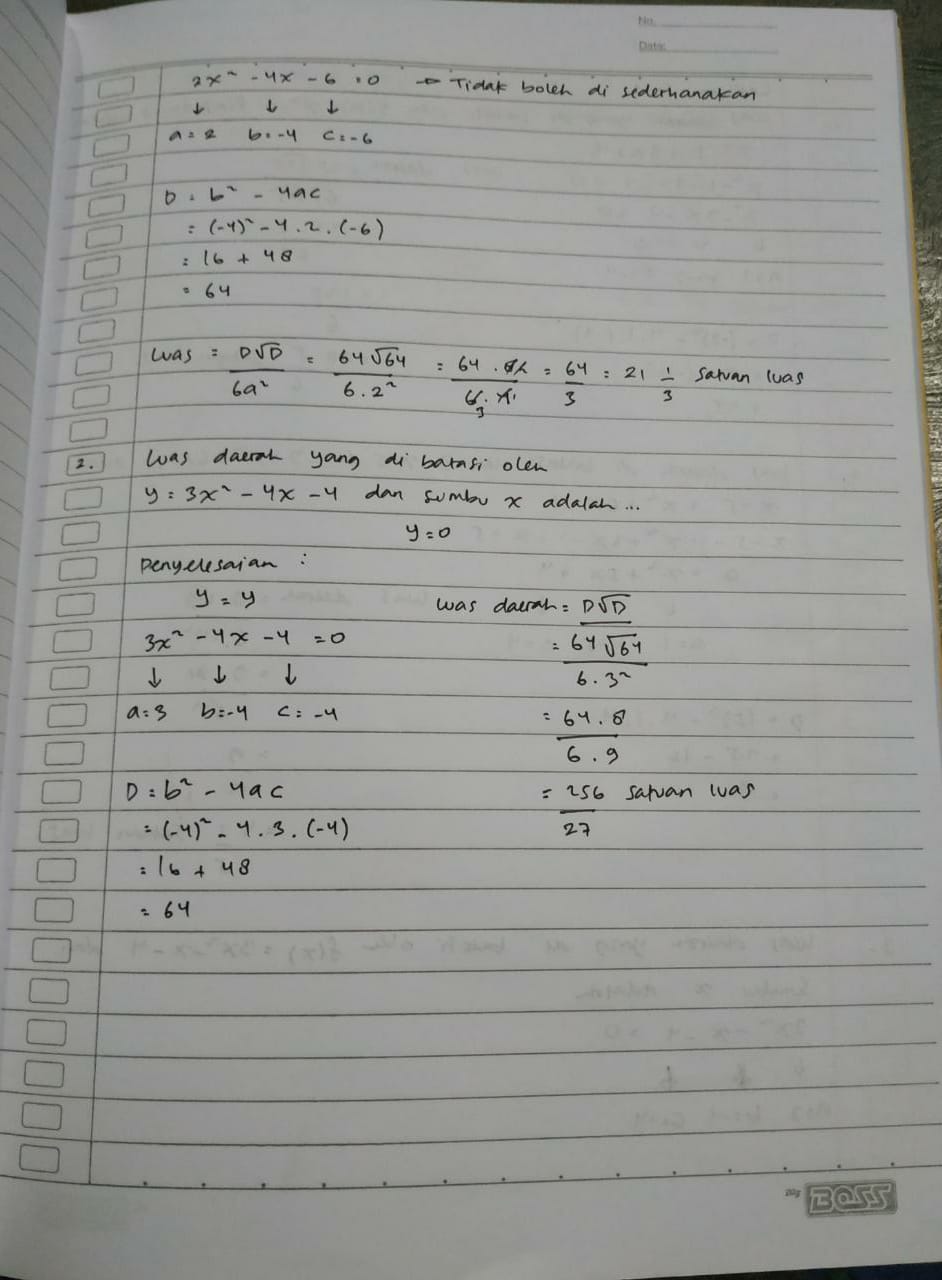 No.
Date:
2x² - 4x - 6 = 0 → Tidak boleh di sederhanakan
↓ ↓ ↓
a = 2 b = -4 c = -6
D = b² - 4ac
= (-4)² - 4 . 2 . (-6)
= 16 + 48
= 64
Luas = D√D / 6a² = 64√64 / 6 . 2² = 64 . 8 / 6 . 4 = 64 / 3 = 21 1/3 satuan luas
2. Luas daerah yang di batasi oleh
y = 3x² - 4x - 4 dan sumbu x adalah ...
y = 0
Penyelesaian :
y = y
3x² - 4x - 4 = 0
↓ ↓ ↓
a = 3 b = -4 c = -4
D = b² - 4ac
= (-4)² - 4 . 3 . (-4)
= 16 + 48
= 64
Luas daerah = D√D
= 64√64 / 6 . 3²
= 64 . 8 / 6 . 9
= 256 / 27 satuan luas
BOSS